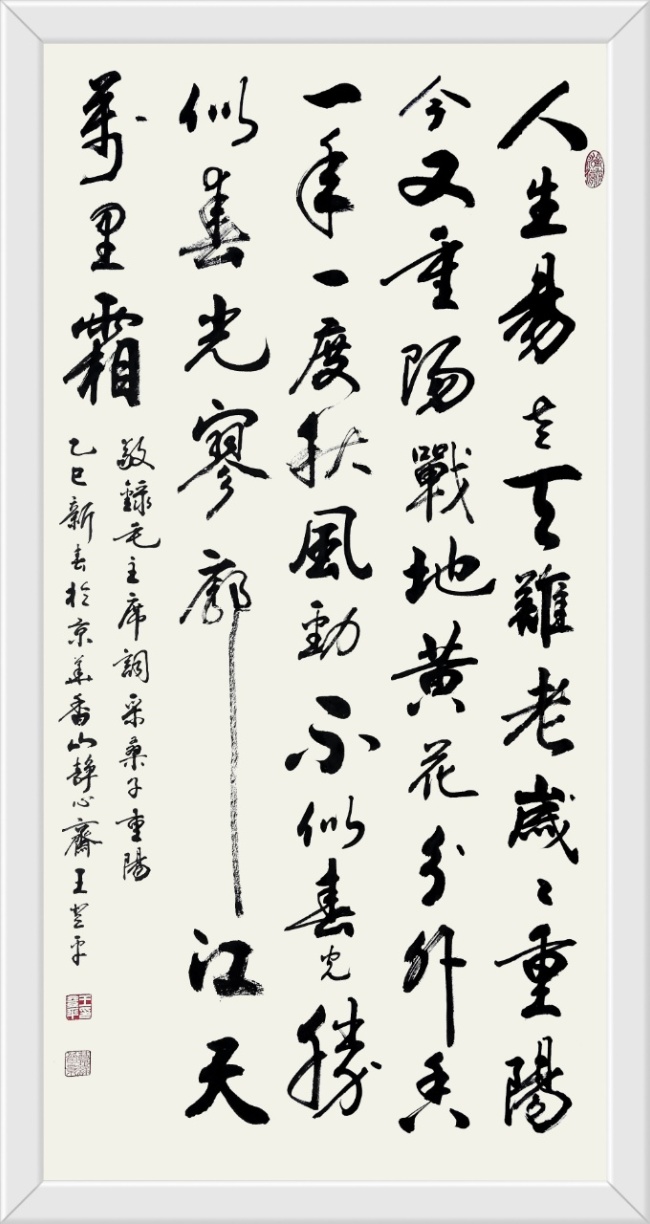 人生易老天難老歲々重陽
今又重陽戰地黃花分外香
一年一度秋風勁不似春光勝
似春光寥廓江天
萬里霜
敬錄毛主席詞采桑子重陽
乙巳新春於京華香山靜心齋王登平